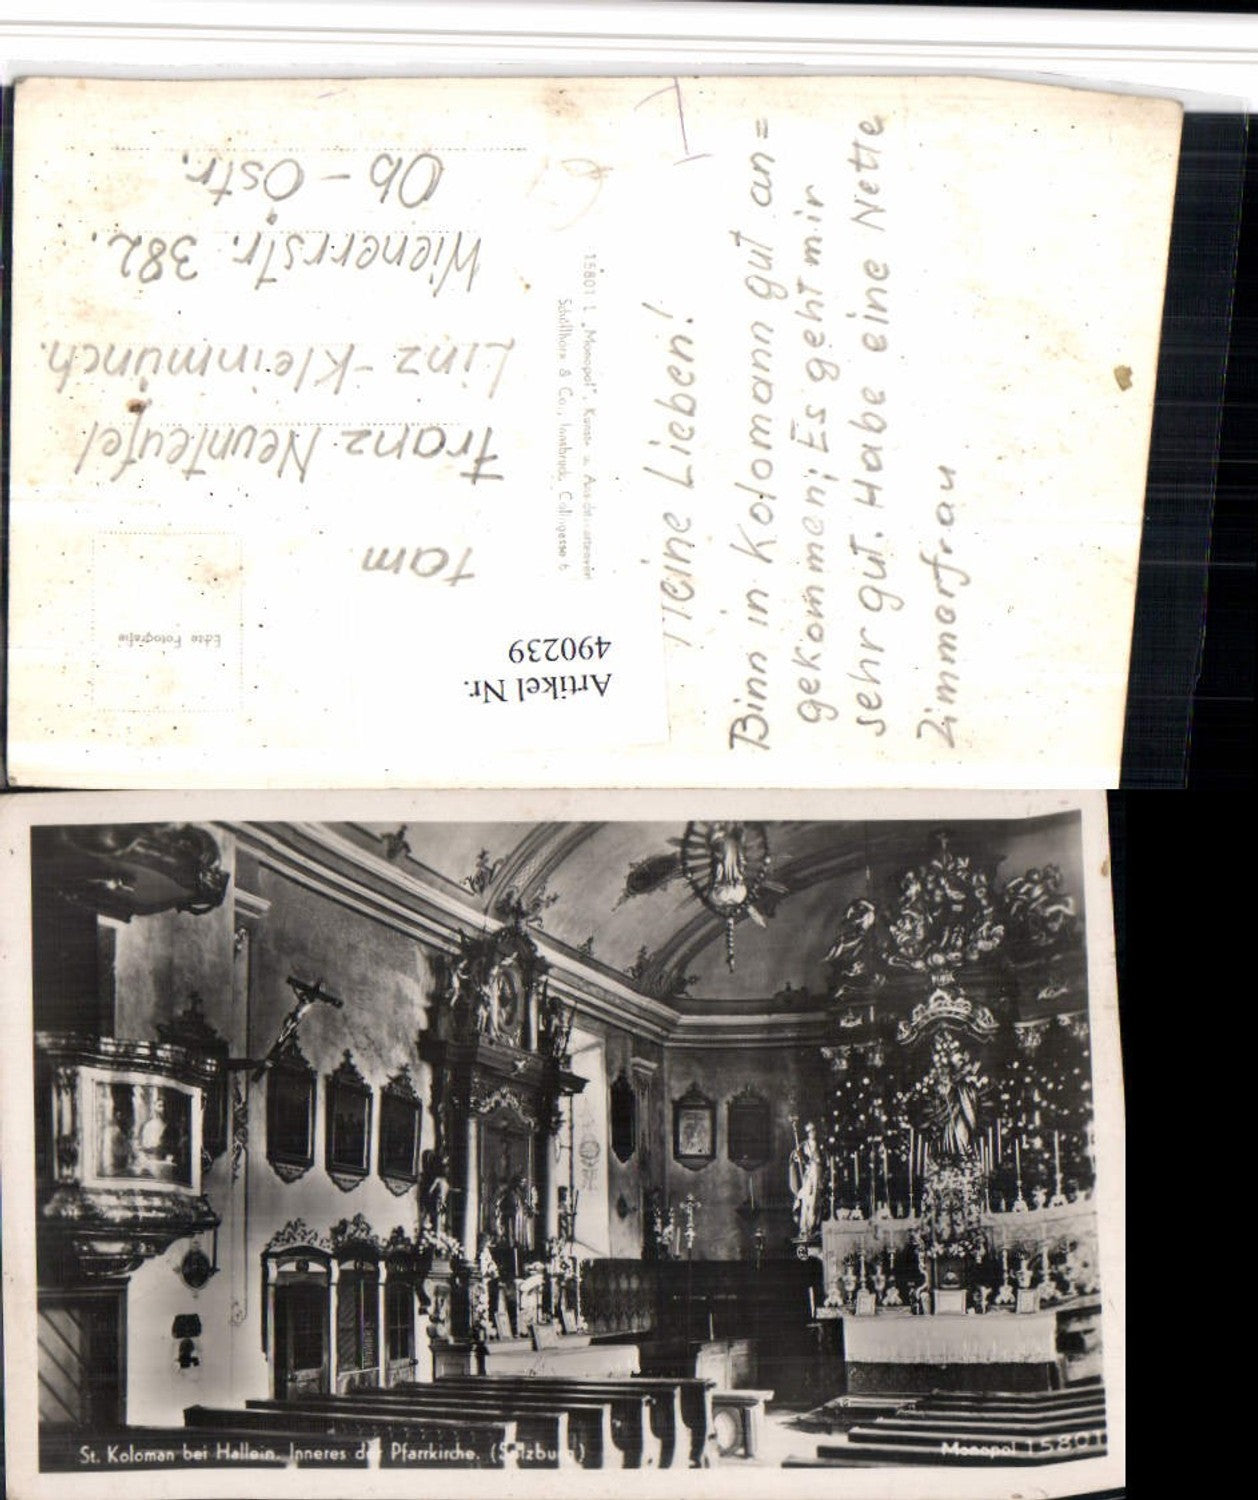 Meine Lieben!
Binn in Kolomann gut an=
gekommen; Es geht mir
sehr gut. Habe eine Nette
Zimmerfrau
15801 L „Monopol", Kunst- u. Ansichtskartenverl
Schöllhorn & Co., Innsbruck, Collingasse 6
Artikel Nr.
490239
Echte Fotografie
Fam
Franz Neunteufel
Linz-Kleinmünch.
Wienerrstr. 382.
Ob-Östr.
St. Koloman bei Hallein. Inneres der Pfarrkirche. (Salzburg)
Monopol 15801